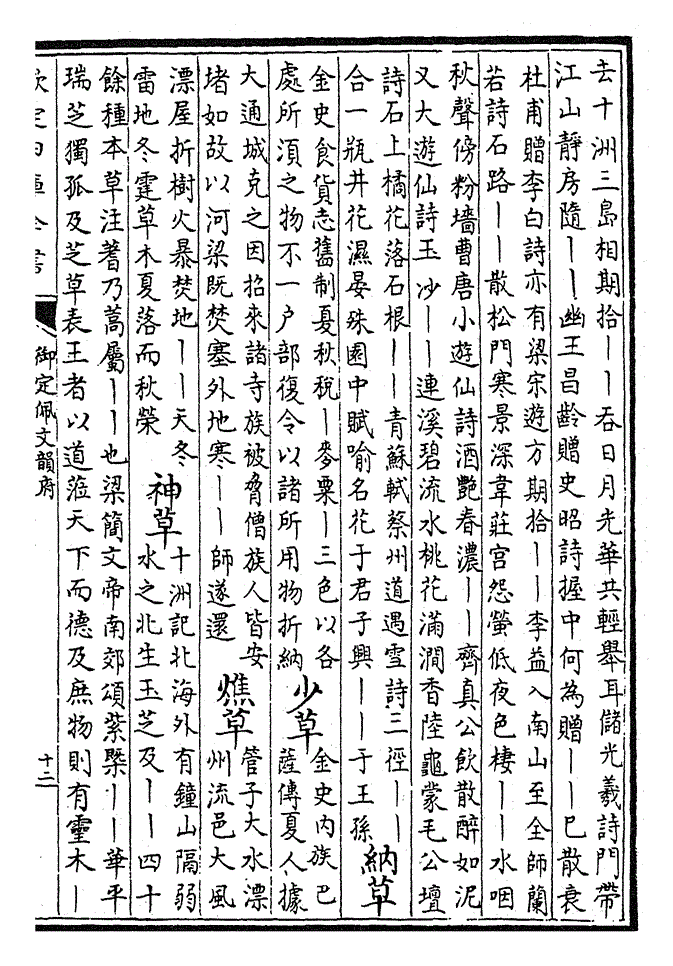 去十洲三島相期拾——吞日月光華共輕舉耳儲光羲詩門帶
江山靜房隨——幽王昌齡贈史昭詩握中何為贈——已散衰
杜甫贈李白詩亦有梁宋遊方期拾——李益入南山至全師蘭
若詩石路——散松門寒景深韋莊宮怨螢低夜色棲——水咽
秋聲傍粉墻曹唐小遊仙詩酒艷春濃——齊真公飲散醉如泥
又大遊仙詩玉沙——連溪碧流水桃花滿澗香陸龜蒙毛公壇
詩石上橘花落石根——青蘇軾蔡州道遇雪詩三徑——
合一瓶井花濕晏殊園中賦喻名花于君子興——于王孫
納草
金史食貨志舊制夏秋稅—麥粟—三色以各
處所須之物不一户部復令以諸所用物折納
少草
金史内族巴
薩傳夏人據
大通城克之因招來諸寺族被脅僧族人皆安
堵如故以河梁既焚塞外地寒——師遂還
燋草
管子大水漂
州流邑大風
漂屋折樹火暴焚地——天冬
雷地冬霆草木夏落而秋榮
神草
十洲記北海外有鐘山隔弱
水之北生玉芝及——四十
餘種本草注蓍乃蒿屬——也梁簡文帝南郊頌紫檕——華平
瑞芝獨孤及芝草表王者以道蒞天下而德及庶物則有靈木—
欽定四庫全書
御定佩文韻府
十二